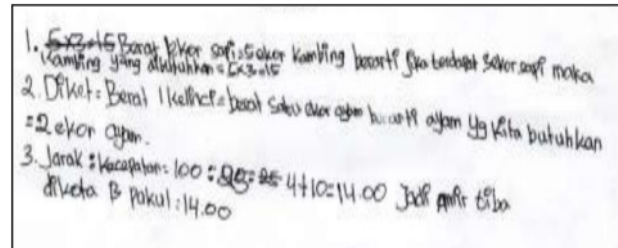 1. 5x3=15 Berat 1 Ekor sapi=5 ekor Kambing berarti jika terdapat 3 ekor sapi maka
Kambing yang dibutuhkan = 5x3=15
2. Diket: Berat 1 kelinci = berat satu ekor ayam berarti ayam yg kita butuhkan
=2 ekor ayam.
3. Jarak : kecepatan = 100 : 25 = 4+10=14.00 Jadi amir tiba
dikota B pukul : 14.00